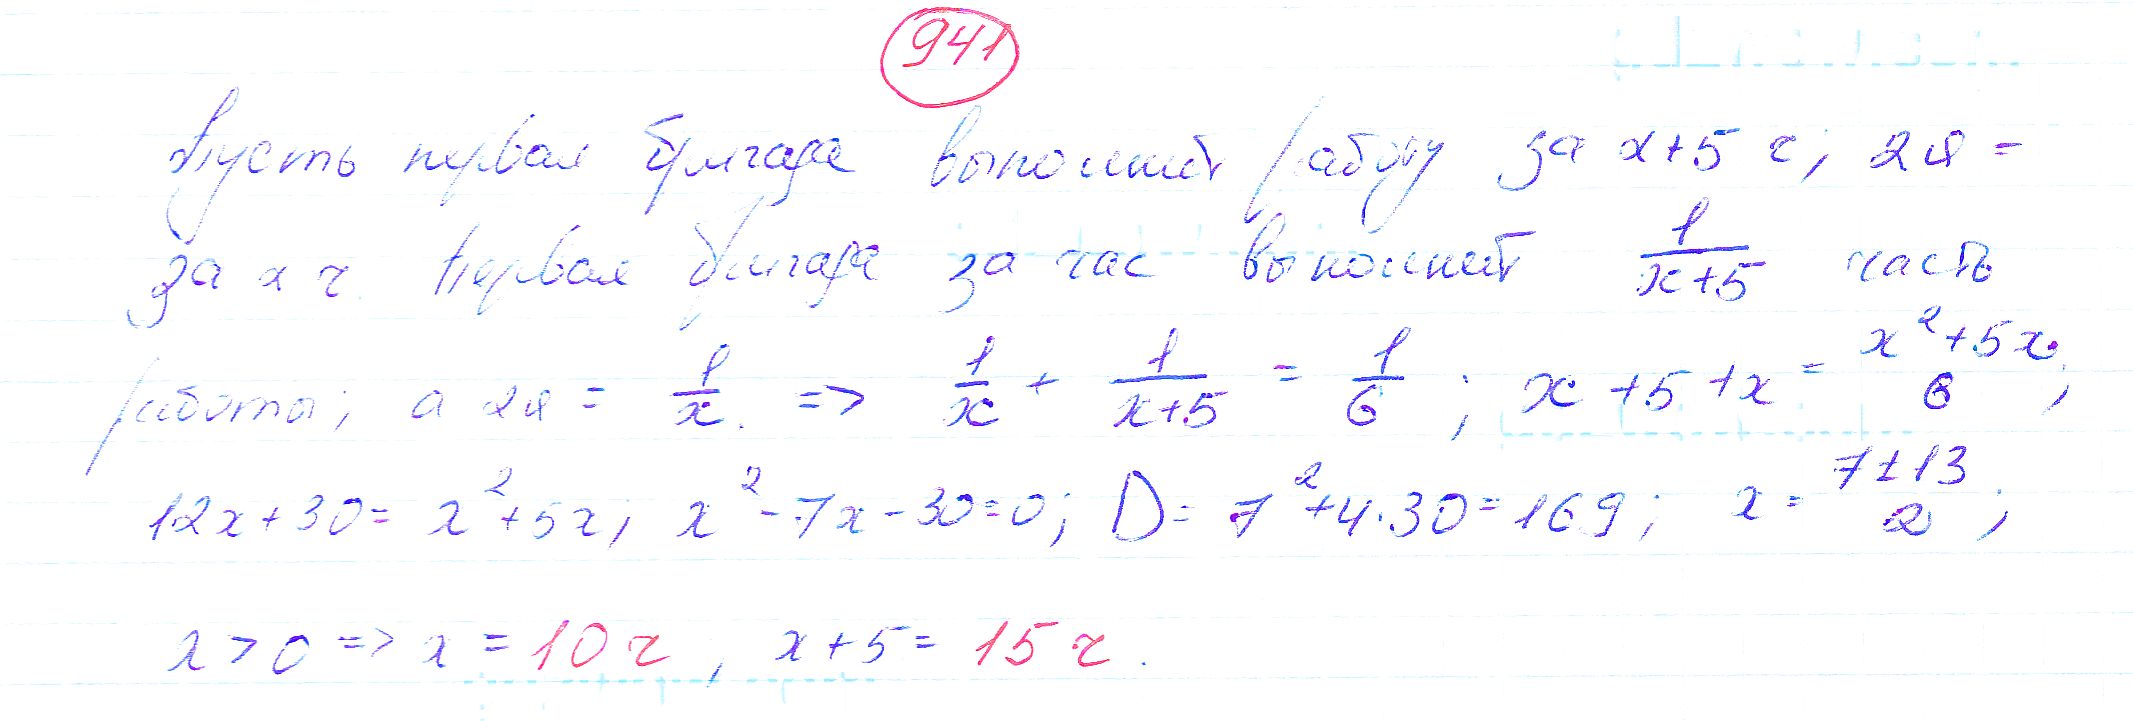 941
Пусть первая бригада выполнит работу за x+5 ч; 2я =
за x ч. Первая бригада за час выполнит 1/(x+5) часть
работы; а 2я = 1/x. => 1/x + 1/(x+5) = 1/6; x+5+x = (x²+5x)/6;
12x+30 = x²+5x; x²-7x-30=0; D = 7²+4·30=169; x = (7±13)/2;
x>0 => x = 10 ч, x+5 = 15 ч.